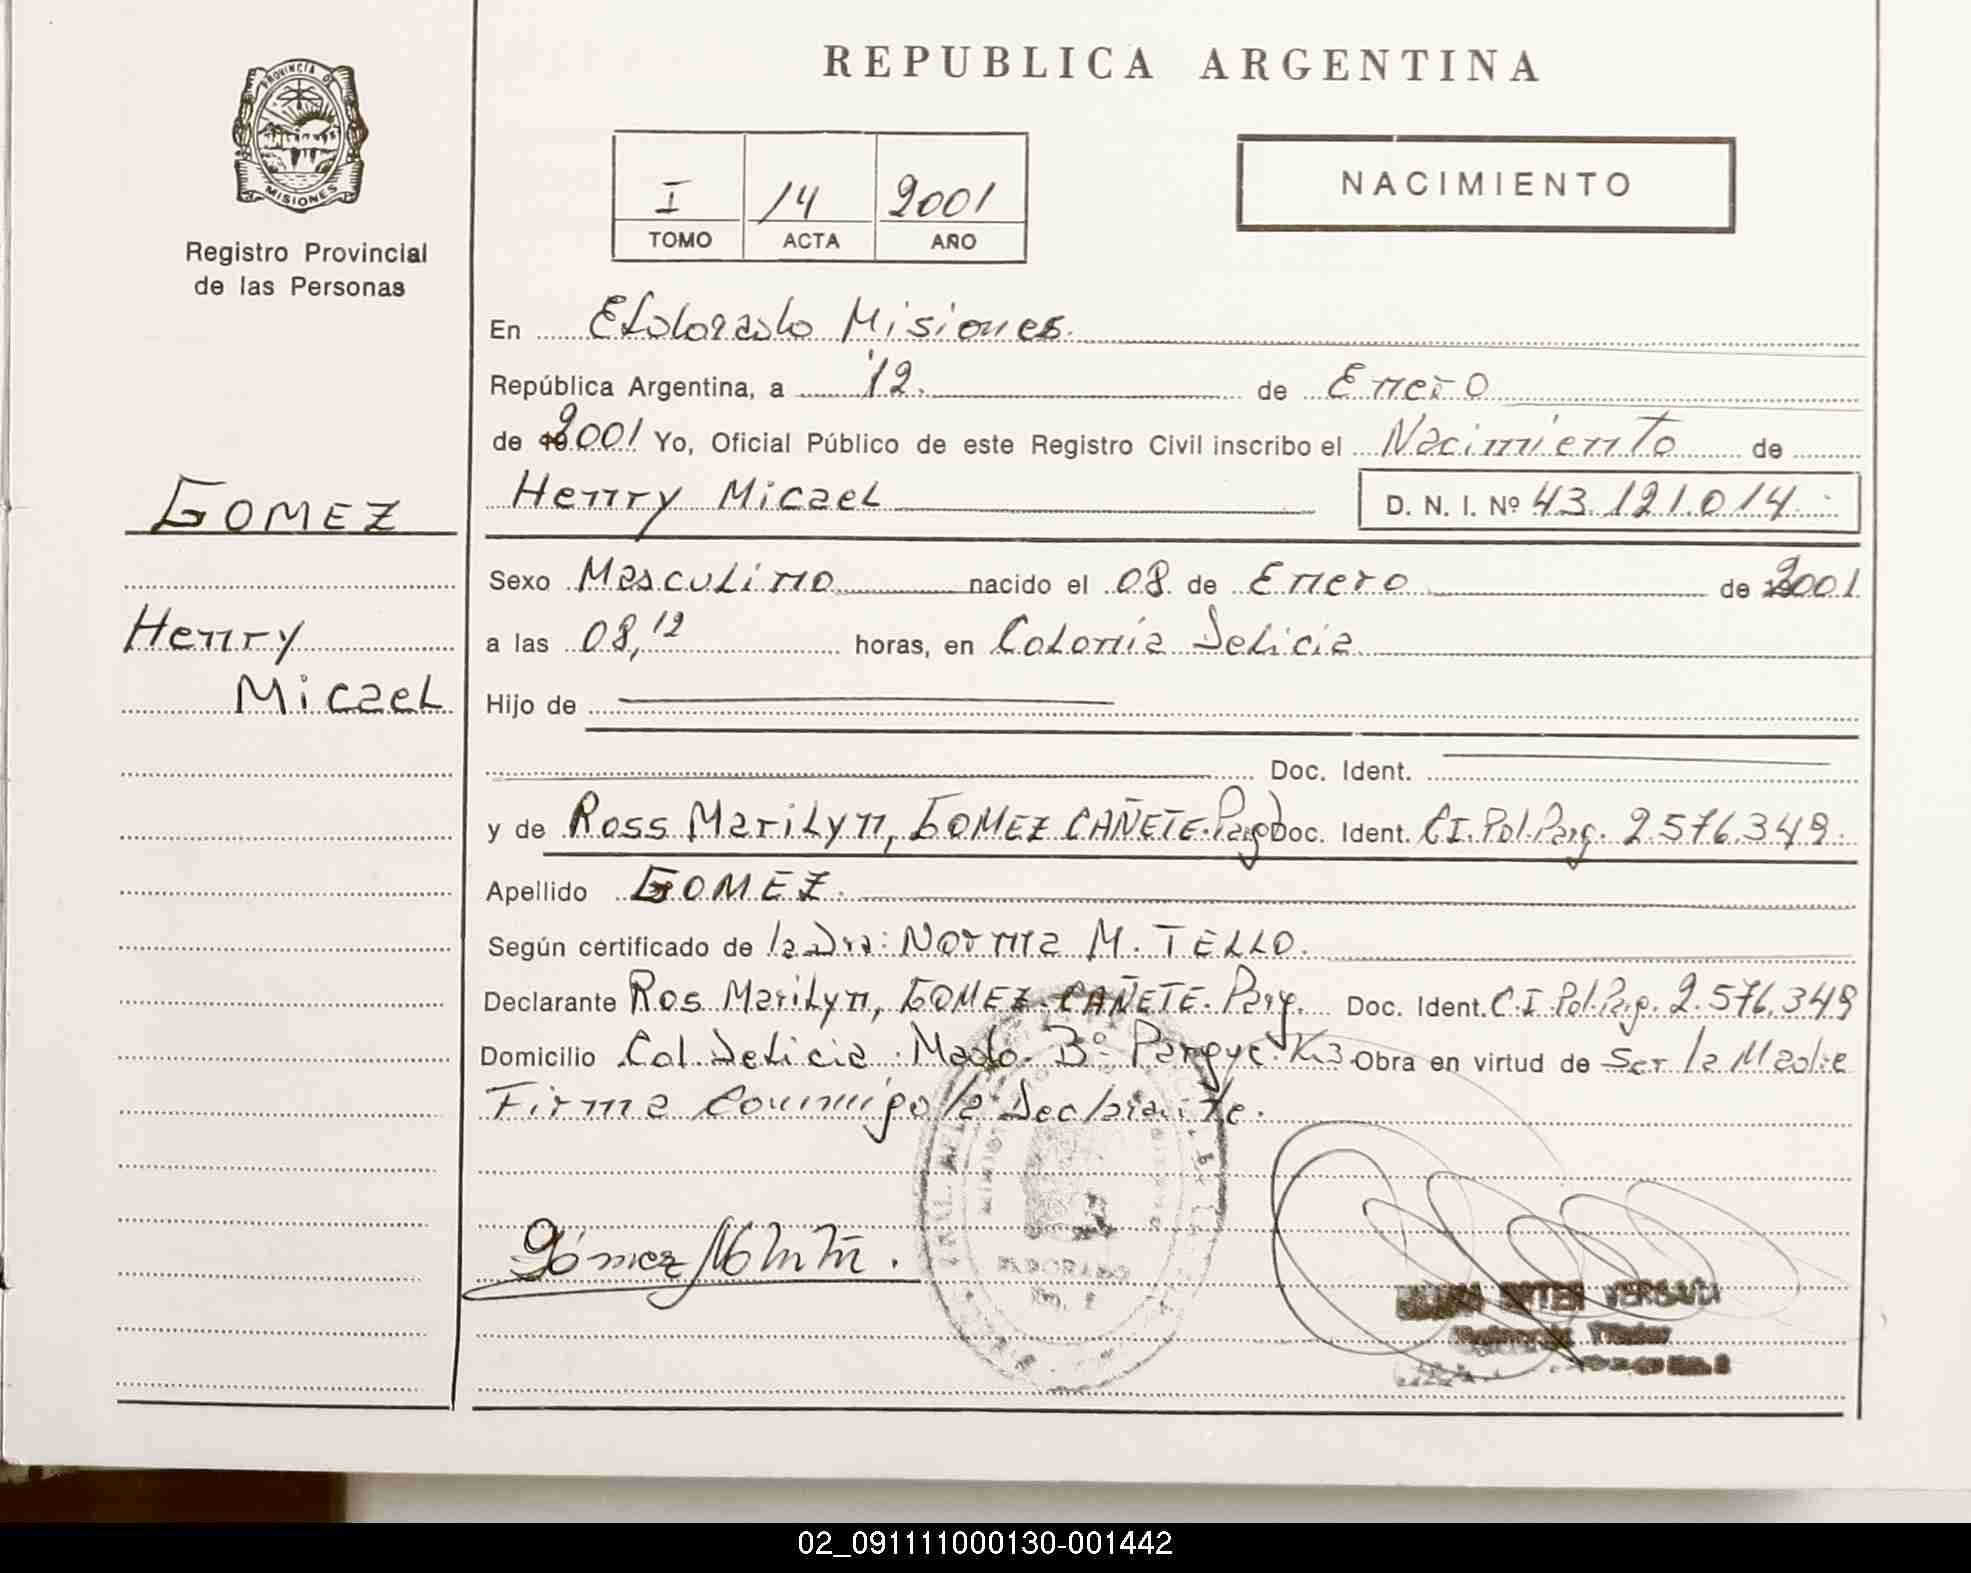 REPUBLICA ARGENTINA
PROVINCIA DE
MISIONES
Registro Provincial
de las Personas
I 14 2001
TOMO ACTA AÑO
NACIMIENTO
En Eldorado Misiones.
República Argentina, a 12. de Enero
de 2001 Yo, Oficial Público de este Registro Civil inscribo el Nacimiento de
GOMEZ
Henry Micael D. N. I. Nº 43.121.014.
Sexo Masculino nacido el 08 de Enero de 2001
Henry
a las 08,12 horas, en Colonia Delicia
Micael
Hijo de
Doc. Ident.
y de Ross Marilyn, GOMEZ CAÑETE. Parg) Doc. Ident. CI. Pol. Parg. 2.576.349.
Apellido GOMEZ.
Según certificado de la Dra: Norma M. TELLO.
Declarante Ros Marilyn, GOMEZ-CAÑETE. Parg. Doc. Ident. C.I Pol. Parg. 2.576.349
Domicilio Col. Delicia. Mado. Bº Km3 Obra en virtud de Ser la Madre
Firma Conmigo la Declarante.
Gómez
ELDORADO
Km.
ESTER
Titular
02_091111000130-001442